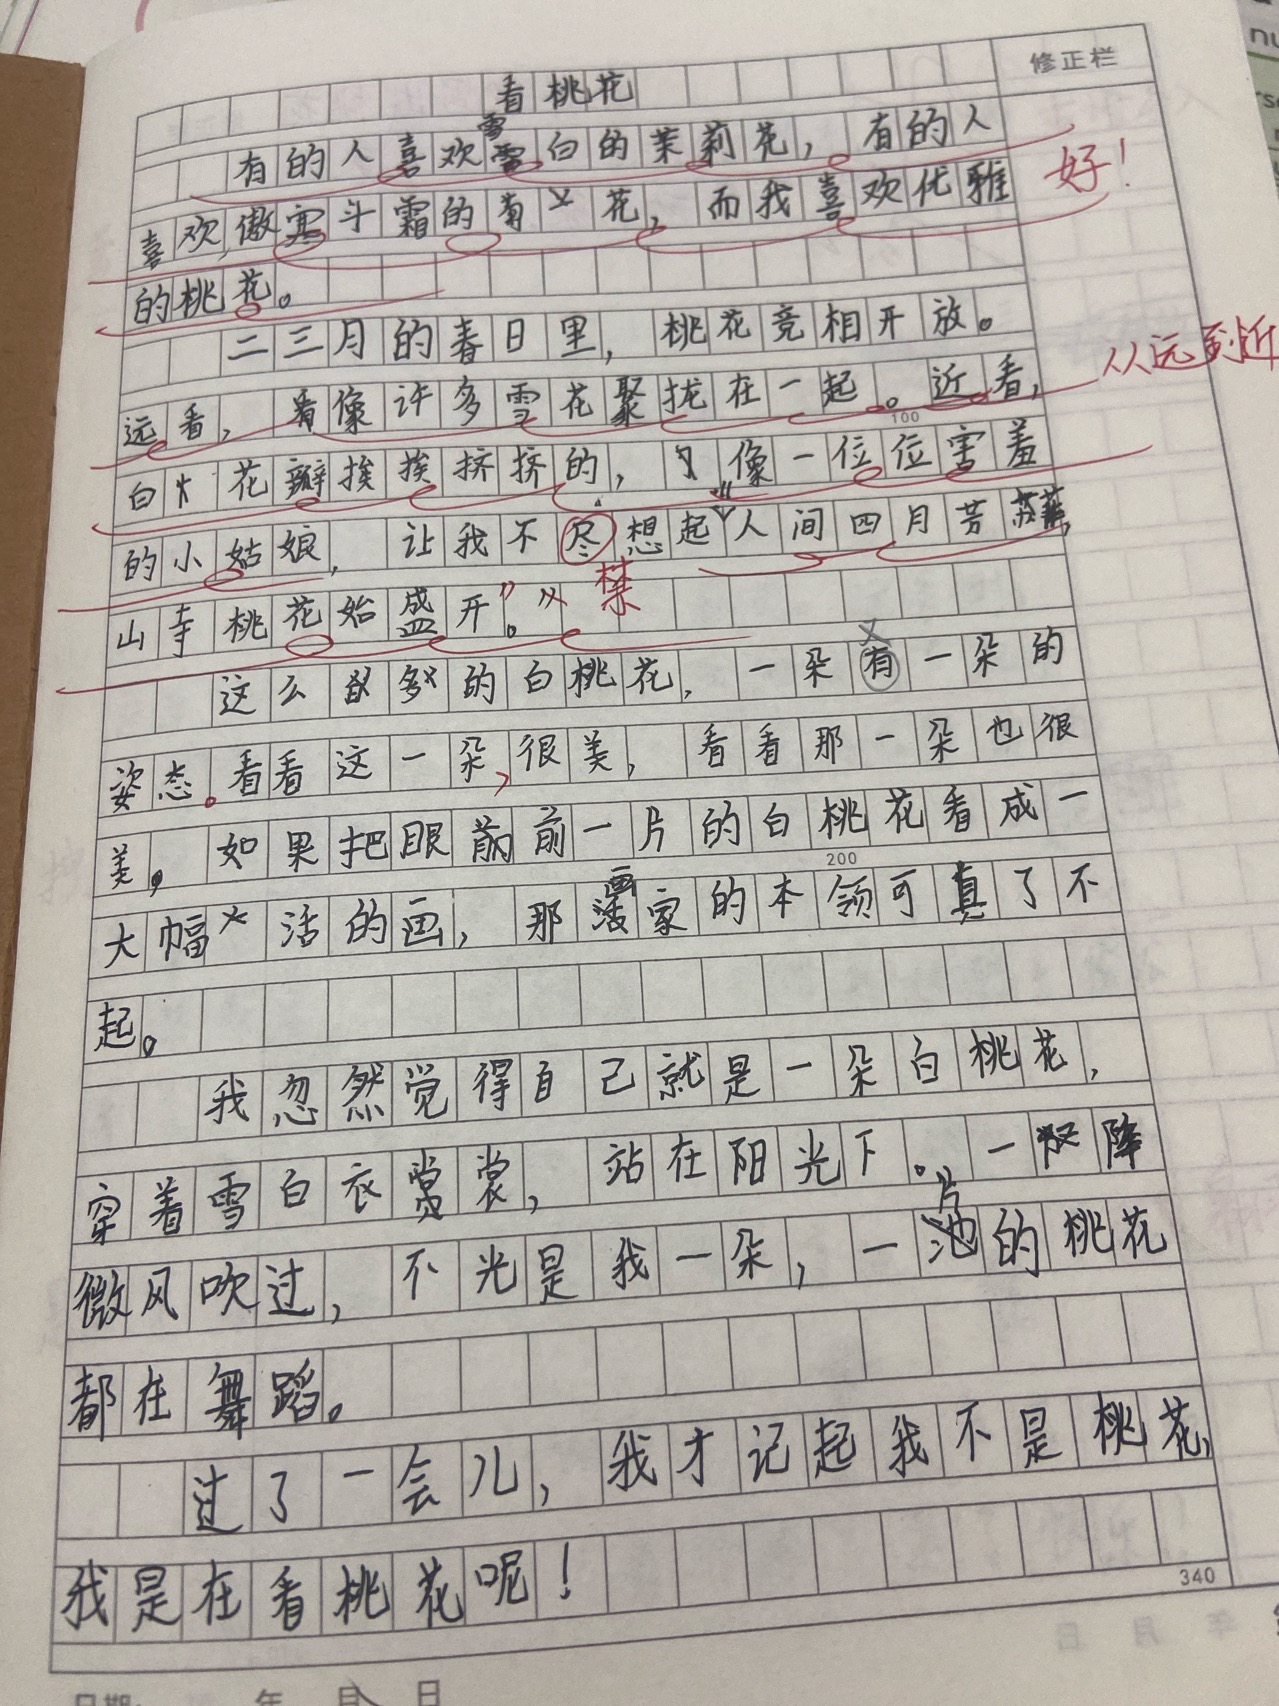 修正栏
看桃花
有的人喜欢雪白的茉莉花，有的人
喜欢傲寒斗霜的菊花，而我喜欢优雅
好！
的桃花。
二三月的春日里，桃花竞相开放。
远看，像许多雪花聚拢在一起。近看，
从远到近
100
白花瓣挨挨挤挤的，像一位位害羞
的小姑娘，让我不尽想起"人间四月芳菲，
禁
山寺桃花始盛开"。
这么多的白桃花，一朵有一朵的
姿态。看看这一朵，很美，看看那一朵也很
美。如果把眼前一片的白桃花看成一
200
大幅活的画，那画家的本领可真了不
起。
我忽然觉得自己就是一朵白桃花，
穿着雪白衣裳，站在阳光下。一阵
微风吹过，不光是我一朵，一片的桃花
都在舞蹈。
过了一会儿，我才记起我不是桃花，
我是在看桃花呢！
340
年 月 日